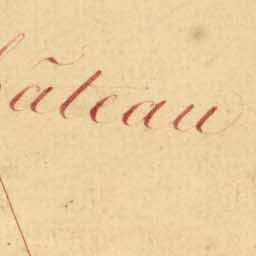 hâteau